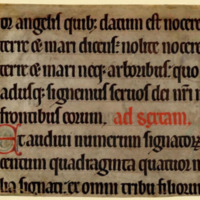 or angelis quib; datum est nocere
terre et mari dicens: nolite nocere
terre et mari neq; arboribus: quo
adusq; signemus seruos dei nr̄i in
frontibus eorum. ad sextam.
Et audiui numerum signatorum
centum quadraginta quatuor m
lia signati: ex omni tribu filiorum